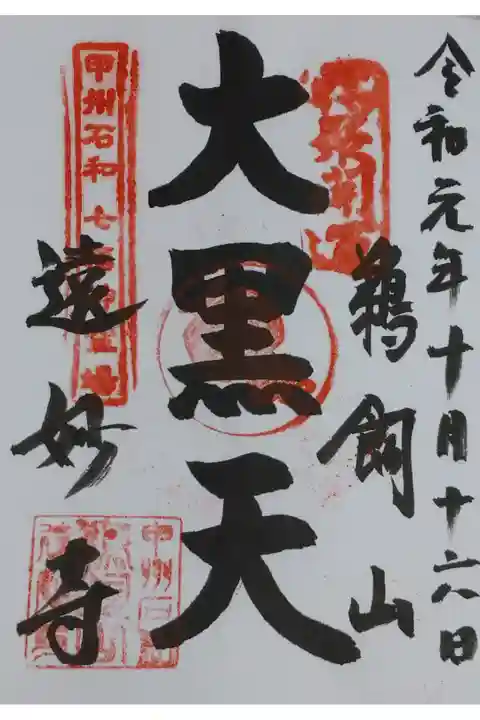 令和元年十月十六日
鵜飼山
大黒天
遠妙寺
甲州石和七
霊場
甲州石